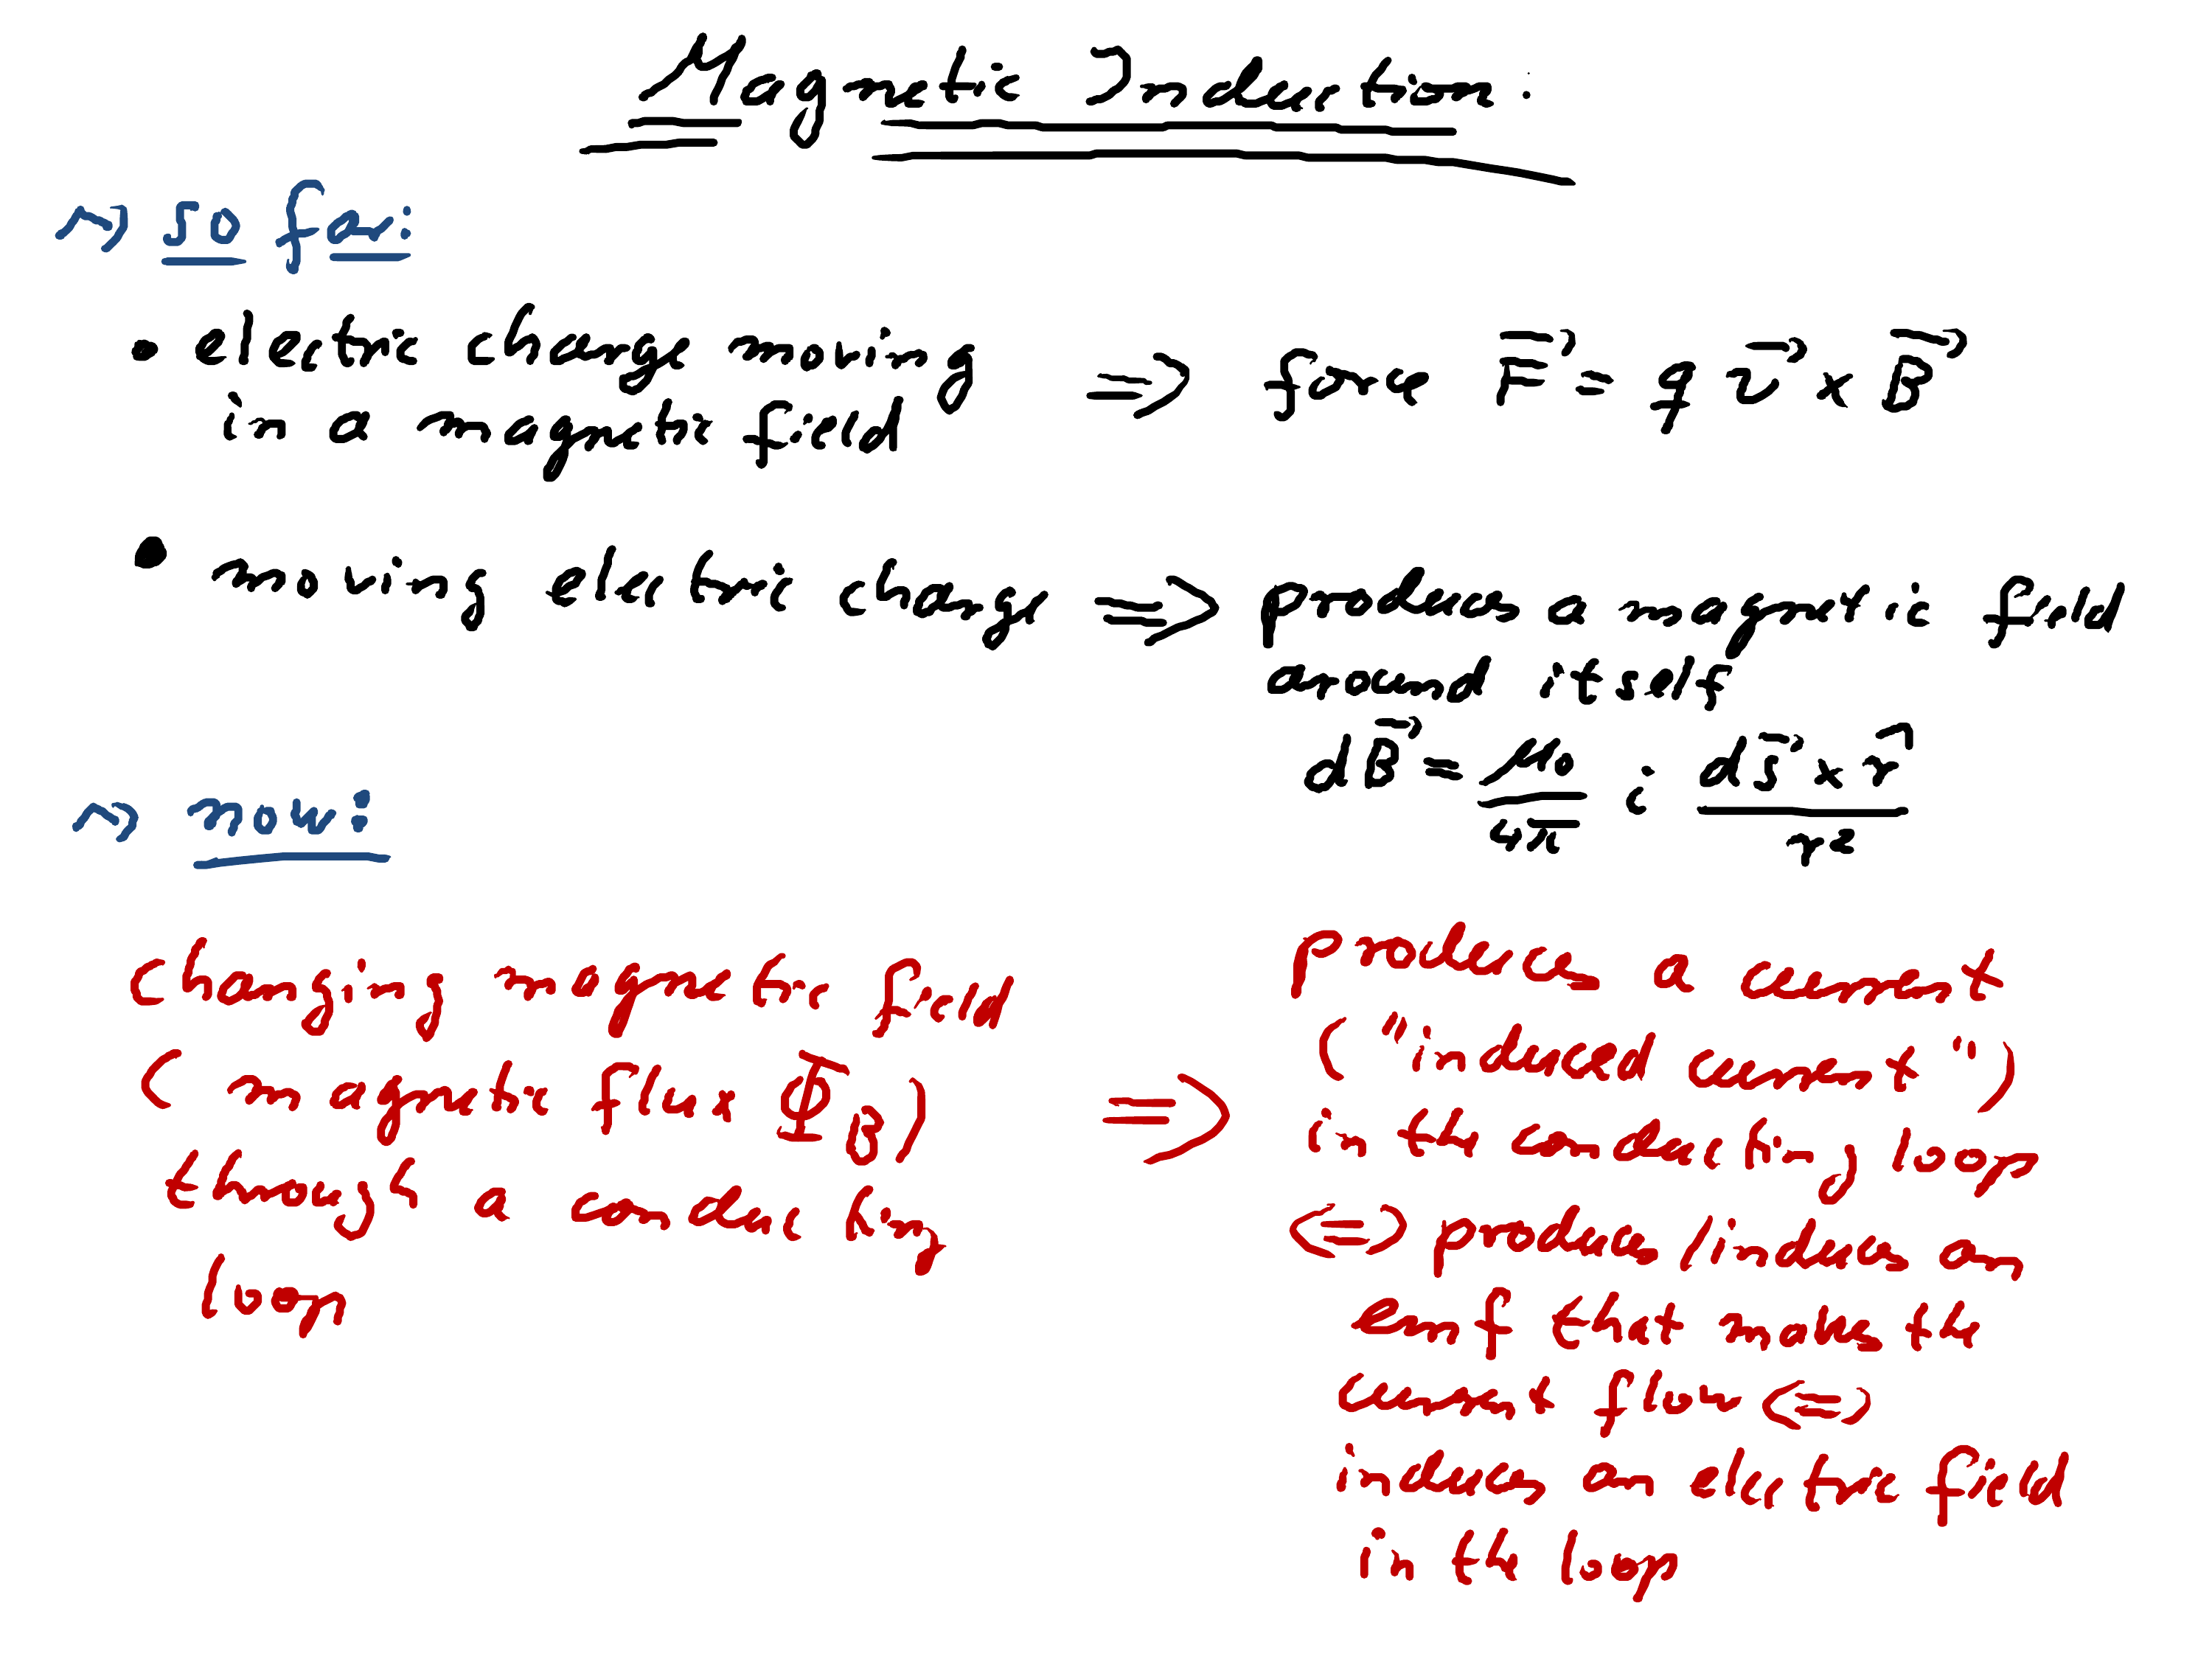 Magnetic Induction:
~> so far:
• electric charge moving
in a magnetic field => force F⃗ = q v⃗ × B⃗
• moving electric charge => produces a magnetic field
around itself
dB⃗ = μ₀/4π i (ds⃗ × r̂)/r²
~> now:
changing magnetic field
(magnetic flux Φ_B)
through a conducting
loop
=>
produces a current
("induced current")
in the conducting loop
<=> produces/induces an
emf that makes the
current flow <=>
induces an electric field
in the loop